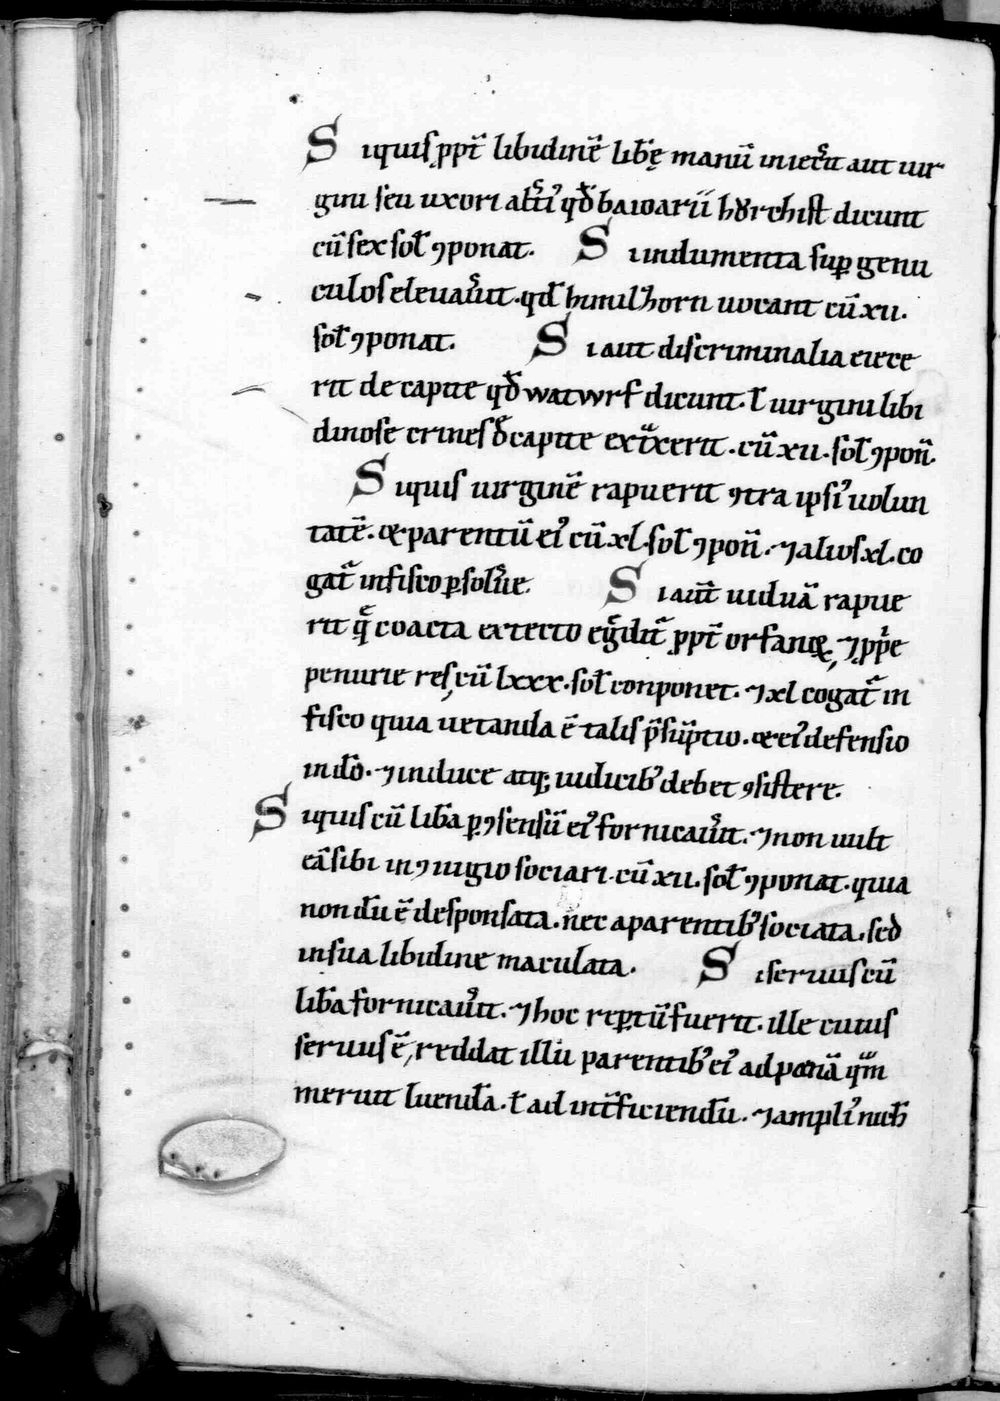 S iquis ꝓpt̄ libidinē lib̄ę manū iniec̄it aut uir
gini seu uxori alt̄i᷒ qd̄ baioarii horchist dicunt
cū sex sol̄ ꝯponat. S i indumenta suꝑ genu
culos eleuauit̄. qd̄ himilhorn uocant cū xii.
sol̄ ꝯponat. S i aut discriminalia eiece
rit de capite qd̄ watwrf dicunt. ł uirgini libi
dinose crines d̄ capite extͣxerit. cū xii. sol̄ ꝯpon̄.
S iquis uirginē rapuerit ꝯtra ipsi᷒ uolun
tatē. & parentū ei᷒ cū xl. sol̄ ꝯpon̄. ⁊ alios xl. co
gat᷑ in fisco ꝑsolu̅e. S i aut̄ uiduā rapue
rit q̄ coacta ex tecto eg̅dit᷑ ꝓpt̄ orfanoꝝ, ⁊ ꝓp̄e
penurie res, cū lxxx. sol̄ conponet. ⁊ xl cogat᷑ in
fisco quia uetanda ē talis p̄sūptio. & ei᷒ defensio
in dō. ⁊ in duce atq; iudicib᷒ debet ꝯsistere.
S iquis cū lib̄a ꝑ ꝯsensū ei᷒ fornicauit̄. ⁊ non uult
eā sibi in ꝯiugio sociari. cū xii. sol̄ ꝯponat. quia
nondū ē desponsata. nec a parentib᷒ sociata. sed
in sua libidine maculata. S i seruus cū
lib̄a fornicauit̄. ⁊ hoc reꝑtū fuerit. ille cuius
seruus ē, reddat illā parentib᷒ ei᷒ ad penā qͣm
meruit luendā. ł ad int̄ficiendū. ⁊ ampli᷒ nich̄